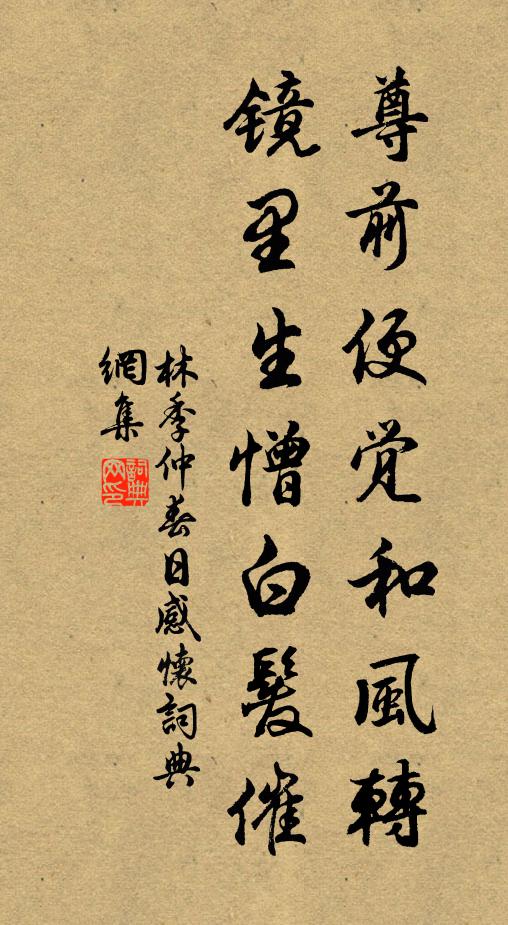 尊前便觉和風轉
镜里生憎白髮催
林季仲春日感懷詞典
網集
詞典網印